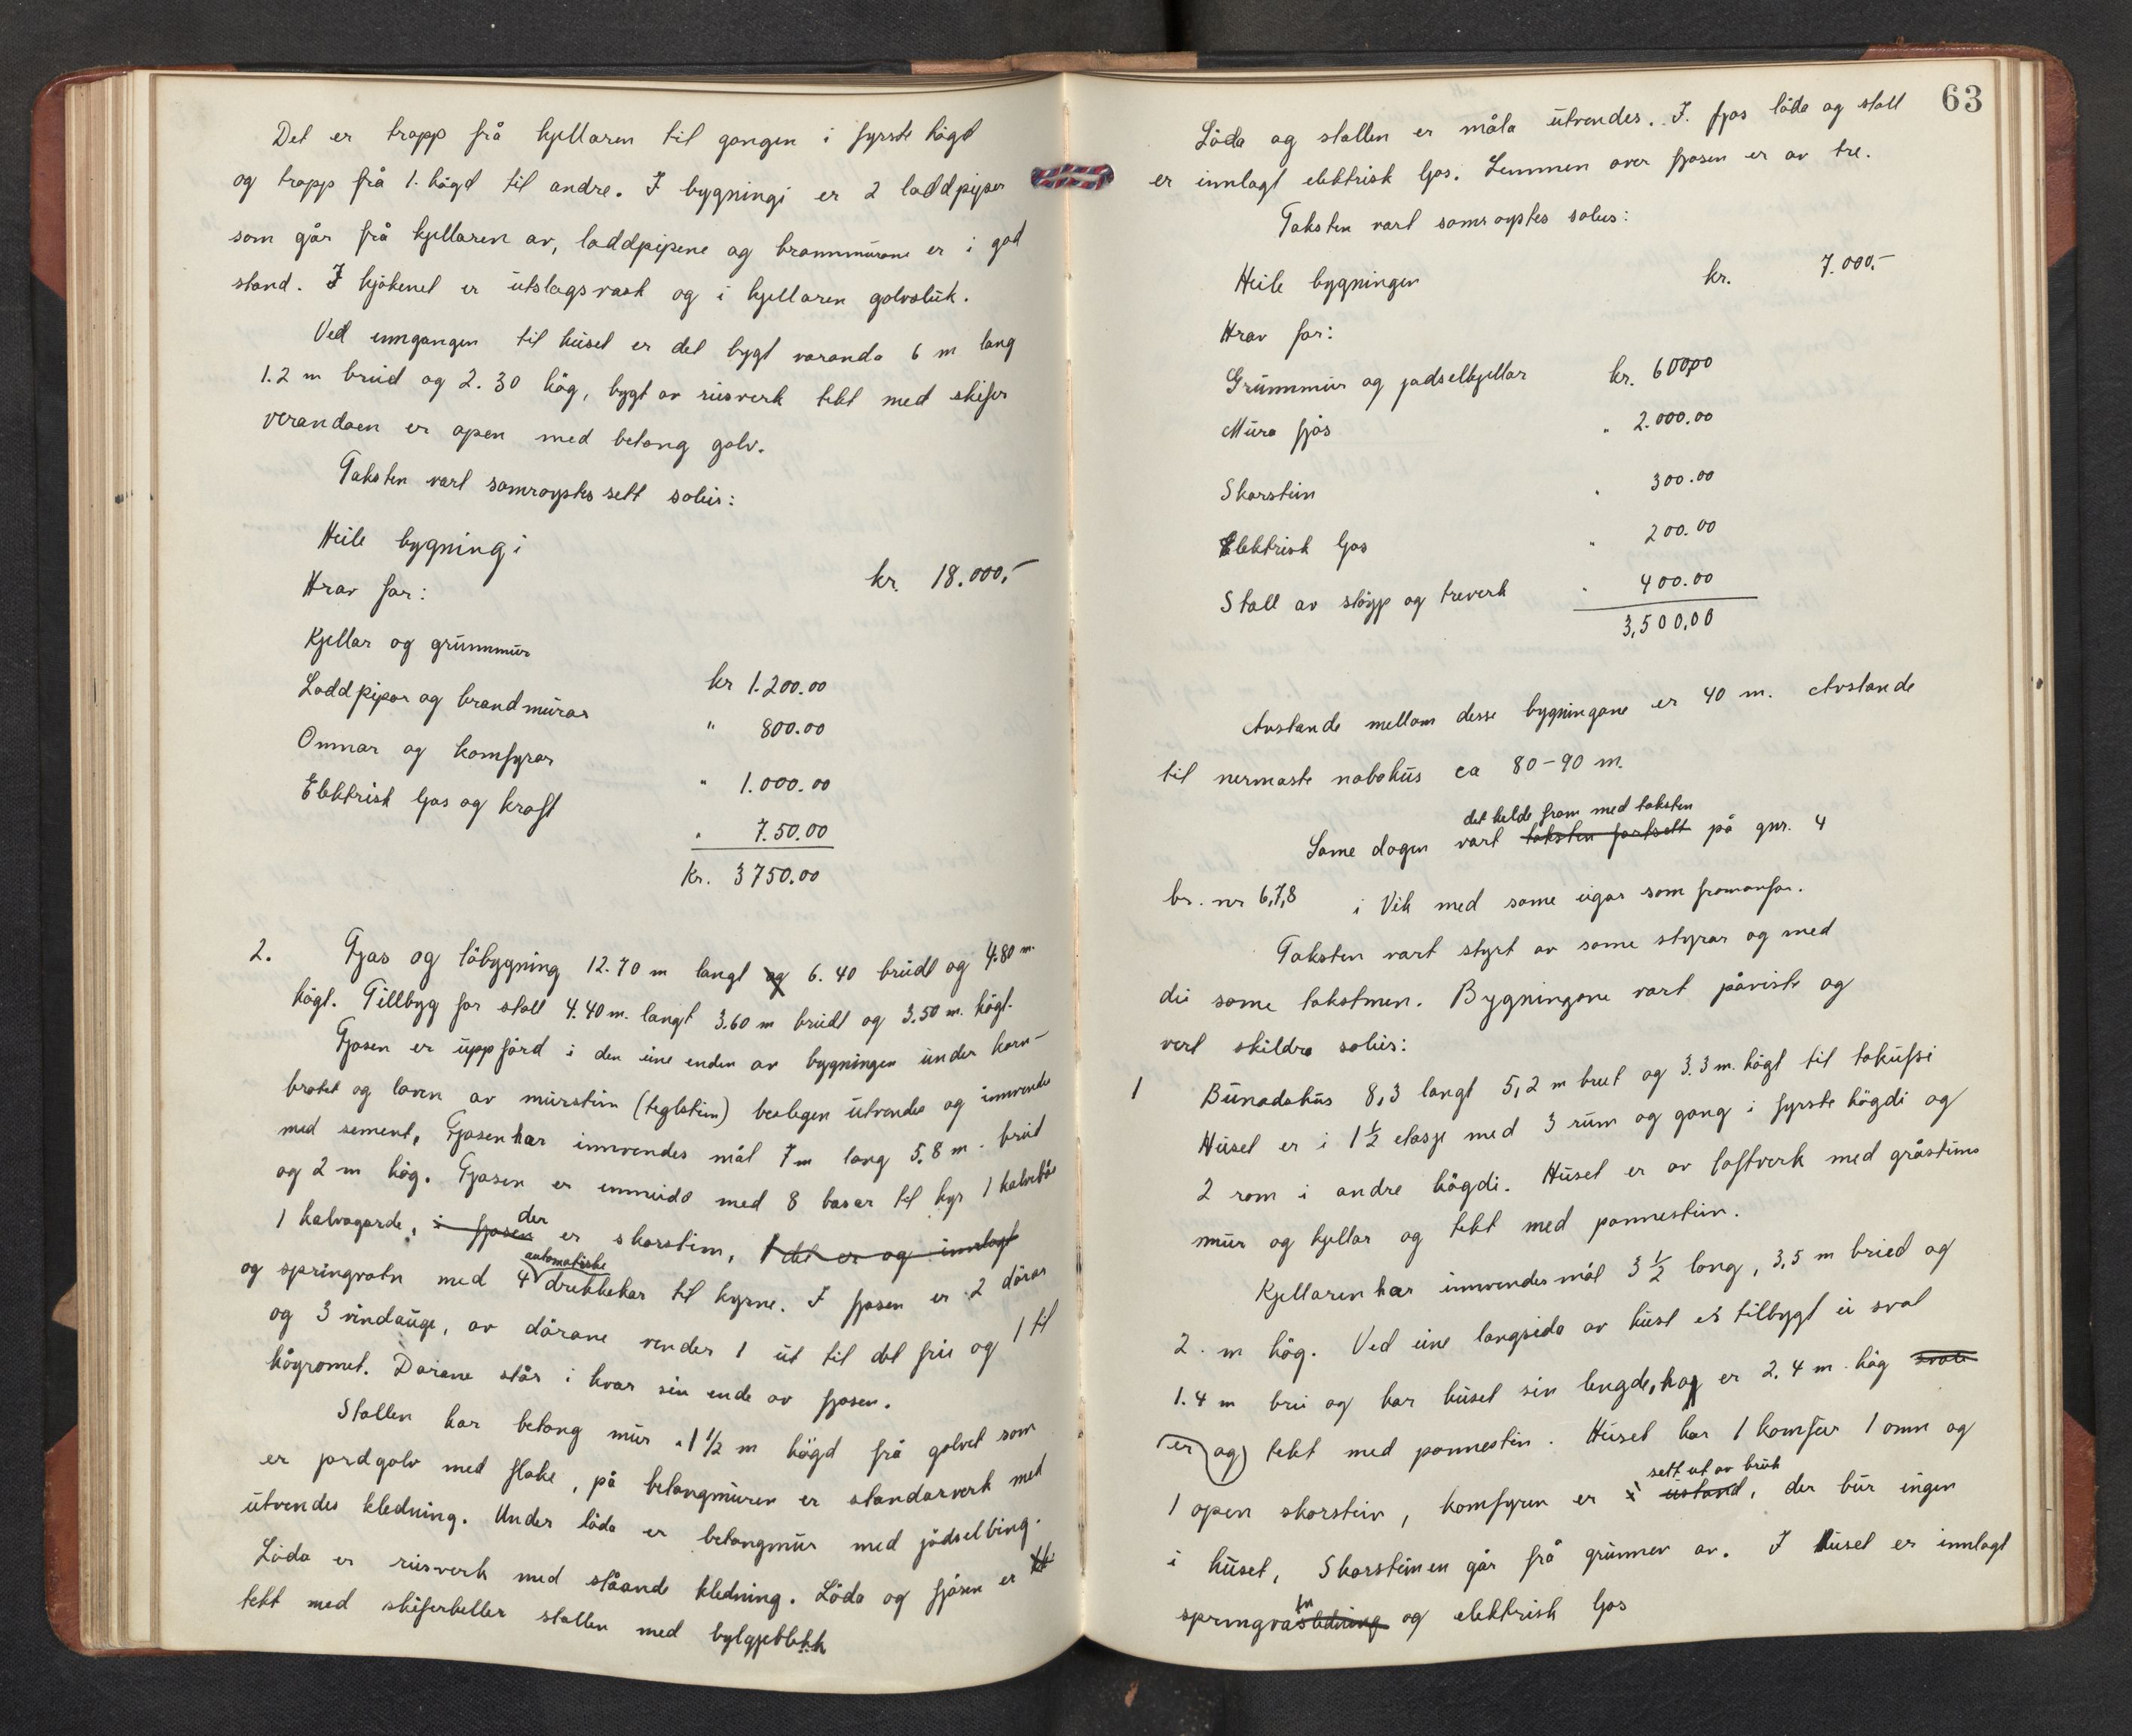 Det er trapp frå kjellaren til gangen i fyrste högd
og trapp frå 1. högd til andre. I bygningi er 2 laddpiper
som går frå kjellaren av, laddpipene og brannmurane er i god
stand. I kjökenet er utslagsvask og i kjellaren golvsluk.
Ved inngangen til huset er det bygt varanda 6 m lang
1.2 m breid og 2.30 hög, bygt av reisverk tekt med skifer
verandaen er open med betong golv.
Taksten vart samröystes sett soleis:
Heile bygningi
kr. 18.000,-
Hrav for:
Kjellar og grunnmur kr 1.200.00
Laddpipar og brandmurar " 800.00
Omnar og komfyrar " 1.000.00
Elektrisk ljos og kraft " 7.50.00
kr. 3750.00
2. Fjos og löbygning 12.70 m langt og 6.40 breidt og 4.80 m
högt. Tillbyg for stall 4.40 m. langt 3.60 m breidt og 3.50 m. högt.
Fjosen er uppförd i den eine enden av bygningen under korn-
brotet og loven av murstein (teglstein) beslegen utvendes og innvendes
med sement, Fjosen har innvendes mål 7 m lang 5.8 m. breid
og 2 m hög. Fjosen er innreido med 8 basar til kyr 1 kalvebås
1 kalvagarde, i fjosen der er skorstein, det er og innlagt
og springvatn med 4 automatiske drikkekar til kyrne. I fjosen er 2 dörar
og 3 vindauge, av dörane vender 1 ut til det frie og 1 til
högromet. Dörane står i kvar sin ende av fjosen.
Stallen har betong mur 1 1/2 m högd frå golvet som
er jordgolv med flake, på betongmuren er standarverk med
utvendes kledning. Under löda er betongmur med jödselbing.
Löda er reisverk med ståande kledning. Löda og fjösen er
tekt med skiferheller stallen med bylgjeblekk
63
Löda og stallen er måla utvendes. I. fjos löda og stall
er innlagt elektrisk ljos. Lemmen over fjosen er av tre.
Taksten vart samröystes soleis:
Heile bygningen kr. 7.000.-
Hrav for:
Grunnmur og jödselkjellar kr. 600,00
Mura fjös " 2.000.00
Skorstein " 300.00
Elektrisk ljos " 200.00
Stall av stöyp og treverk " 400.00
3,500,00
Avstande mellom desse bygningane er 40 m. Avstande
til nermaste nabohus ca 80-90 m.
det helde fram med taksten
Same dagen vart taksten fortsett på gnr. 4
br. nr 6,7,8 i Vik med same eigar som framanfor.
Taksten vart styrt av same styrar og med
dei same takstmen. Bygningane vart påviste og
vert skildra soleis:
1 Bunadshus 8,3 langt 5,2 m breet og 3.3 m. högt til takufsi
Huset er i 1 1/2 etasje med 3 rum og gang i fyrste högdi og
2 rom i andre högdi. Huset er av loftverk med gråsteins
mur og kjellar og tekt med pannestein.
Kjellaren har innvendes mål 3 1/2 lang, 3,5 m bried og
2 m hög. Ved eine langsida av hust er tilbygt ei sval
1.4 m brei og har huset sin lengde, hog er 2.4 m. hög svale
er og tekt med pannestein. Huset har 1 komfeir 1 omn og
sett ut av bruk
1 open skorstein, komfyren er i ustand, der bur ingen
i huset, Skorsteinen går frå grunnen av. I Huset er innlagt
springvatn og elektrisk ljos